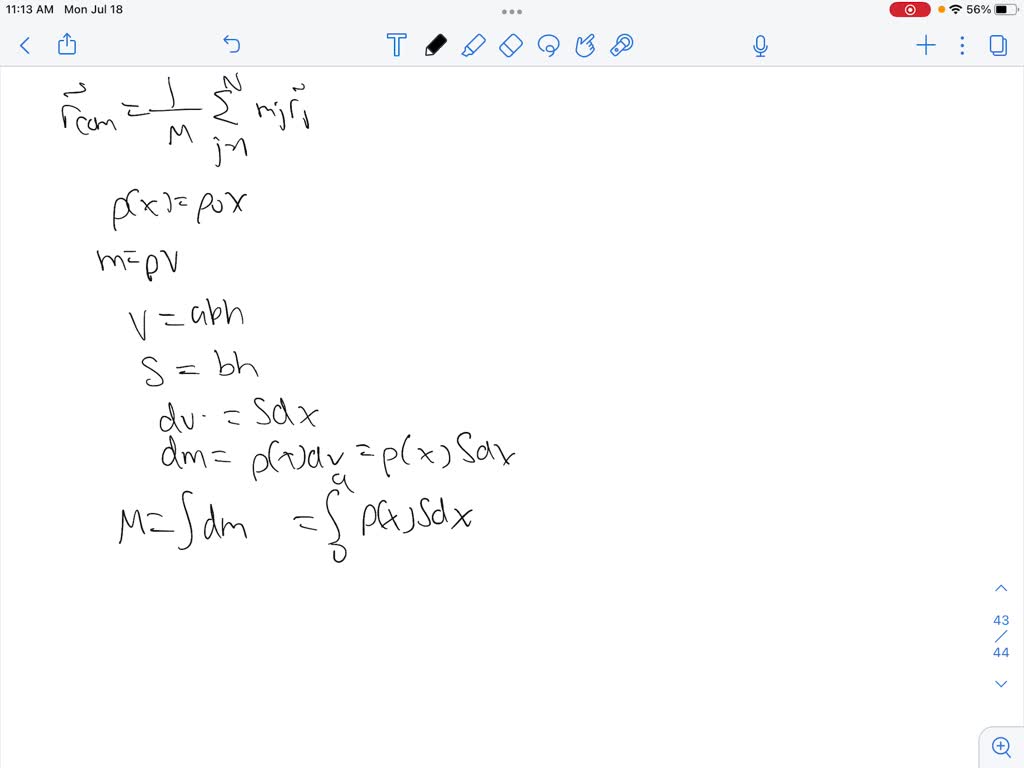 11:13 AM Mon Jul 18
56%
T
r⃗com = 1/M Σ_{j=1}^{N} mj r⃗j
ρ(x) = ρ0x
m = ρV
V = abh
S = bh
dv = Sdx
dm = ρ(x)dv = ρ(x)Sdx
M = ∫dm = ∫_{0}^{a} ρ(x)Sdx
43
/
44